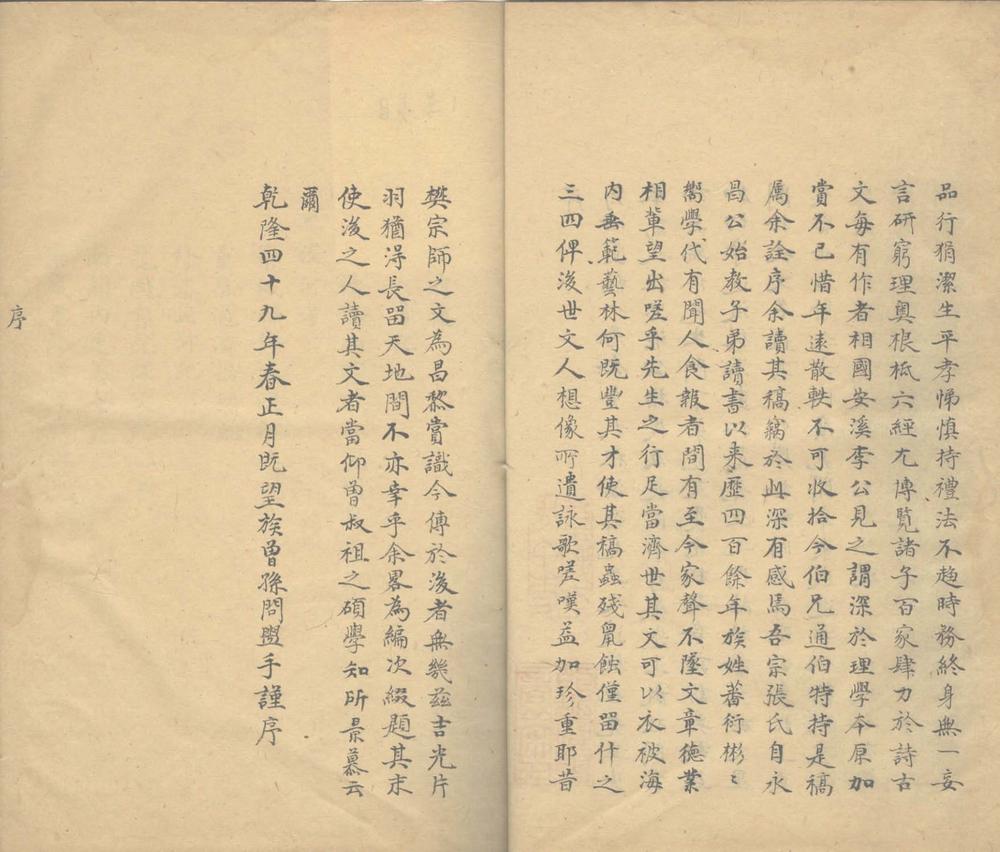 品行狷潔生平孝悌慎持禮法不趨時務終身無一妄
言研窮理奧根柢六經尤博覽諸子百家肆力於詩古
文每有作者相國安溪李公見之謂深於理學本原加
賞不已惜年遠散軼不可收拾今伯兄通伯特持是稿
属余詮序余讀其稿竊於此深有感焉吾宗張氏自永
昌公始教子弟讀書以来歷四百餘年族姓蕃衍彬〻
嚮學代有聞人食報者間有至今家聲不墜文章德業
相軰望出嗟乎先生之行足當濟世其文可以衣被海
内垂範藝林何既豐其才使其稿蟲残鼠蝕僅留什之
三四俾後世文人想像所遺詠歌嗟嘆益加珍重耶昔
樊宗師之文為昌黎賞識今傳於後者無幾茲吉光片
羽猶得長留天地間不亦幸乎余畧為編次綴題其末
使後之人讀其文者當仰曾叔祖之碩學知所景慕云
爾
乾隆四十九年春正月既望族曾孫問盥手謹序
序